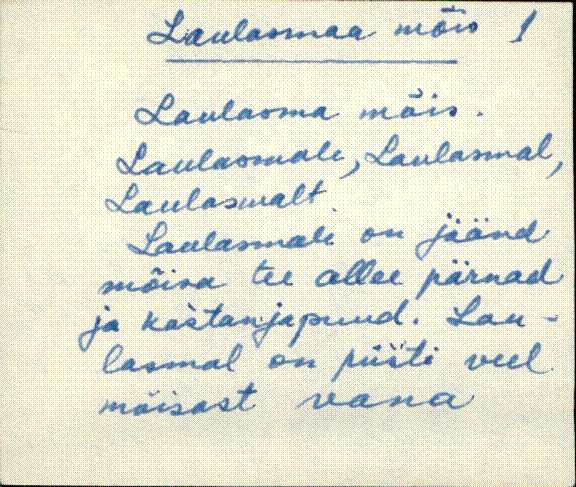 Laulasmaa mõis 1
Laulasma mõis.
Laulasmale, Laulasmal,
Laulasmalt.
Laulasmale on jäänd
mõisa tee allee pärnad
ja kaštanjapuud. Lau-
lasmal on püšti veel
mõisast vana